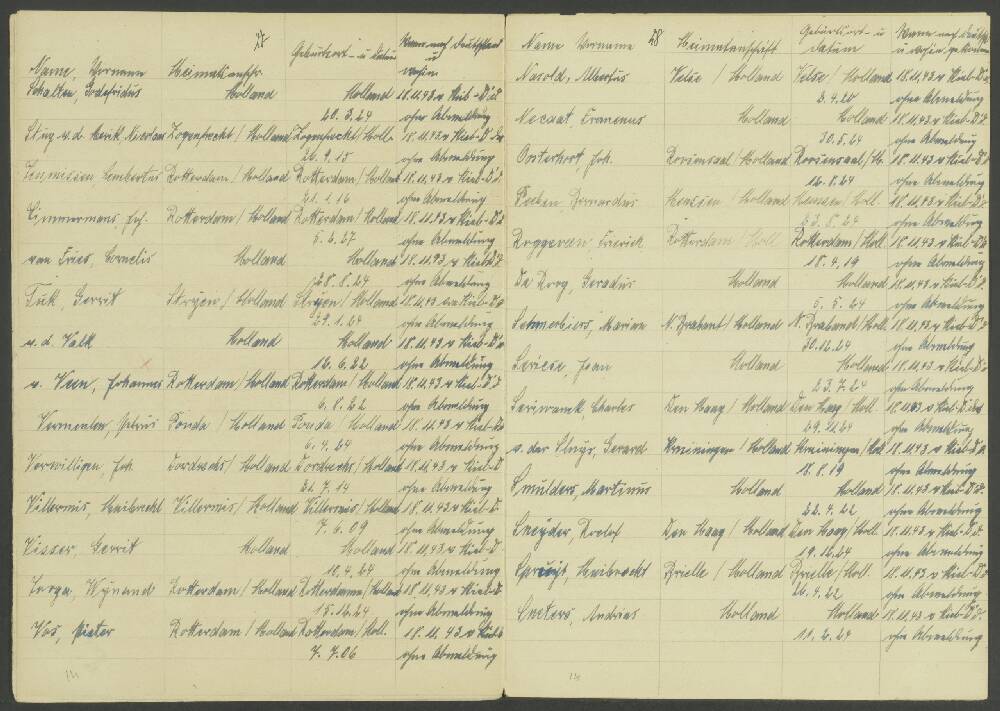 27
Name, Vorname Heimatanschr. Geburtsort- u. Datum Wann nach Deutschland
u
wohin
Schalten, Godefridus Holland Holland 18.11.43 v Kiel-D'd
20.3.24 ohne Abmeldung
Zogenhecht / Holland Zogenhecht / Holl. 18.11.43 v Kiel-D'do
26.9.15 ohne Abmeldung
Lambertus Rotterdam / Holland Rotterdam / Holland 18.11.43 v Kiel-D'd.
21.1.16 ohne Abmeldung
Zimmermans, Joh. Rotterdam / Holland Rotterdam / Holland 18.11.43 v Kiel-D'd
5.6.27 ohne Abmeldung
van Fries, Cornelis Holland Holland 18.11.43 v Kiel-D'd
28.8.24 ohne Abmeldung
Gerrit Stryen / Holland Stryen / Holland 18.11.43 Kiel-D'd
29.1.24 ohne Abmeldung
v.d. Valk Holland Holland 18.11.43 v Kiel-D'd
12.6.22 ohne Abmeldung
v. Veen, Johannes Rotterdam / Holland Rotterdam / Holland 18.11.43 v Kiel-D'd
6.8.22 ohne Abmeldung
Vermeulen, Petrus / Holland / Holland 18.11.43 v Kiel-D'd
6.4.24 ohne Abmeldung
Verwilligen, Joh. Dordrecht / Holland Dordrecht / Holland 18.11.43 v Kiel-D
21.7.14 ohne Abmeldung
Villermis, Huibrecht Villermis / Holland Villermis / Holland 18.11.43 v Kiel-D
7.6.09 ohne Abmeldung
Visser, Gerrit Holland Holland 18.11.43 v Kiel-D
18.4.24 ohne Abmeldung
Wynand Rotterdam / Holland Rotterdam / Holland 18.11.43 v Kiel-D
15.12.24 ohne Abmeldung
Vos, Pieter Rotterdam / Holland Rotterdam / Holl. 18.11.43 v Kiel-D
7.7.06 ohne Abmeldung
14
28
Name Vorname Heimatanschrift Geburtsort- u Wann nach Deutschl.
datum u wohin gekommen
Nasold, Albertus Velse / Holland Velse / Holland 18.11.43 v Kiel-D'd
3.4.20 ohne Abmeldung
Franciscus Holland Holland 18.11.43 v Kiel-D'd
30.5.24 ohne Abmeldung
Oosterhort, Joh. / Holland 18.11.43 v Kiel-D'd
12.8.24 ohne Abmeldung
Bernardus / Holland / Holl. 18.11.43 v Kiel-D'd
23.8.24 ohne Abmeldung
Roggeveen, Frerick Rotterdam / Holl Rotterdam / Holl. 18.11.43 v Kiel-D'd.
18.4.19 ohne Abmeldung
De Roog, Gerardus Holland Holland 18.11.43 v Kiel-D'd.
5.5.24 ohne Abmeldung
N. Brabant / Holland N. Brabandt / Holl. 18.11.43 v Kiel-D'd
30.12.24 ohne Abmeldung
Jean Holland Holland 18.11.43 v Kiel-D'd
23.7.24 ohne Abmeldung
Charles Den Haag / Holland Den Haag / Holl. 18.11.43 v Kiel-D'd
29.11.24 ohne Abmeldung
v. der Sluys, Gerard Kruiningen / Holland Kruiningen / Holl 18.11.43 v Kiel-D'd
18.8.19 ohne Abmeldung
Smulders, Martinus Holland Holland 18.11.43 v Kiel-D'd.
22.4.22 ohne Abmeldung
Sneyder, Roelof Den Haag / Holland Den Haag / Holl. 18.11.43 v Kiel-D'd
19.12.24 ohne Abmeldung
Spruijt, Huibrecht Brielle / Holland Brielle / Holl. 18.11.43 v Kiel-D'd
26.4.22 ohne Abmeldung
Sneters, Andries Holland Holland 18.11.43 v Kiel-D'd.
11.2.24 ohne Abmeldung
14